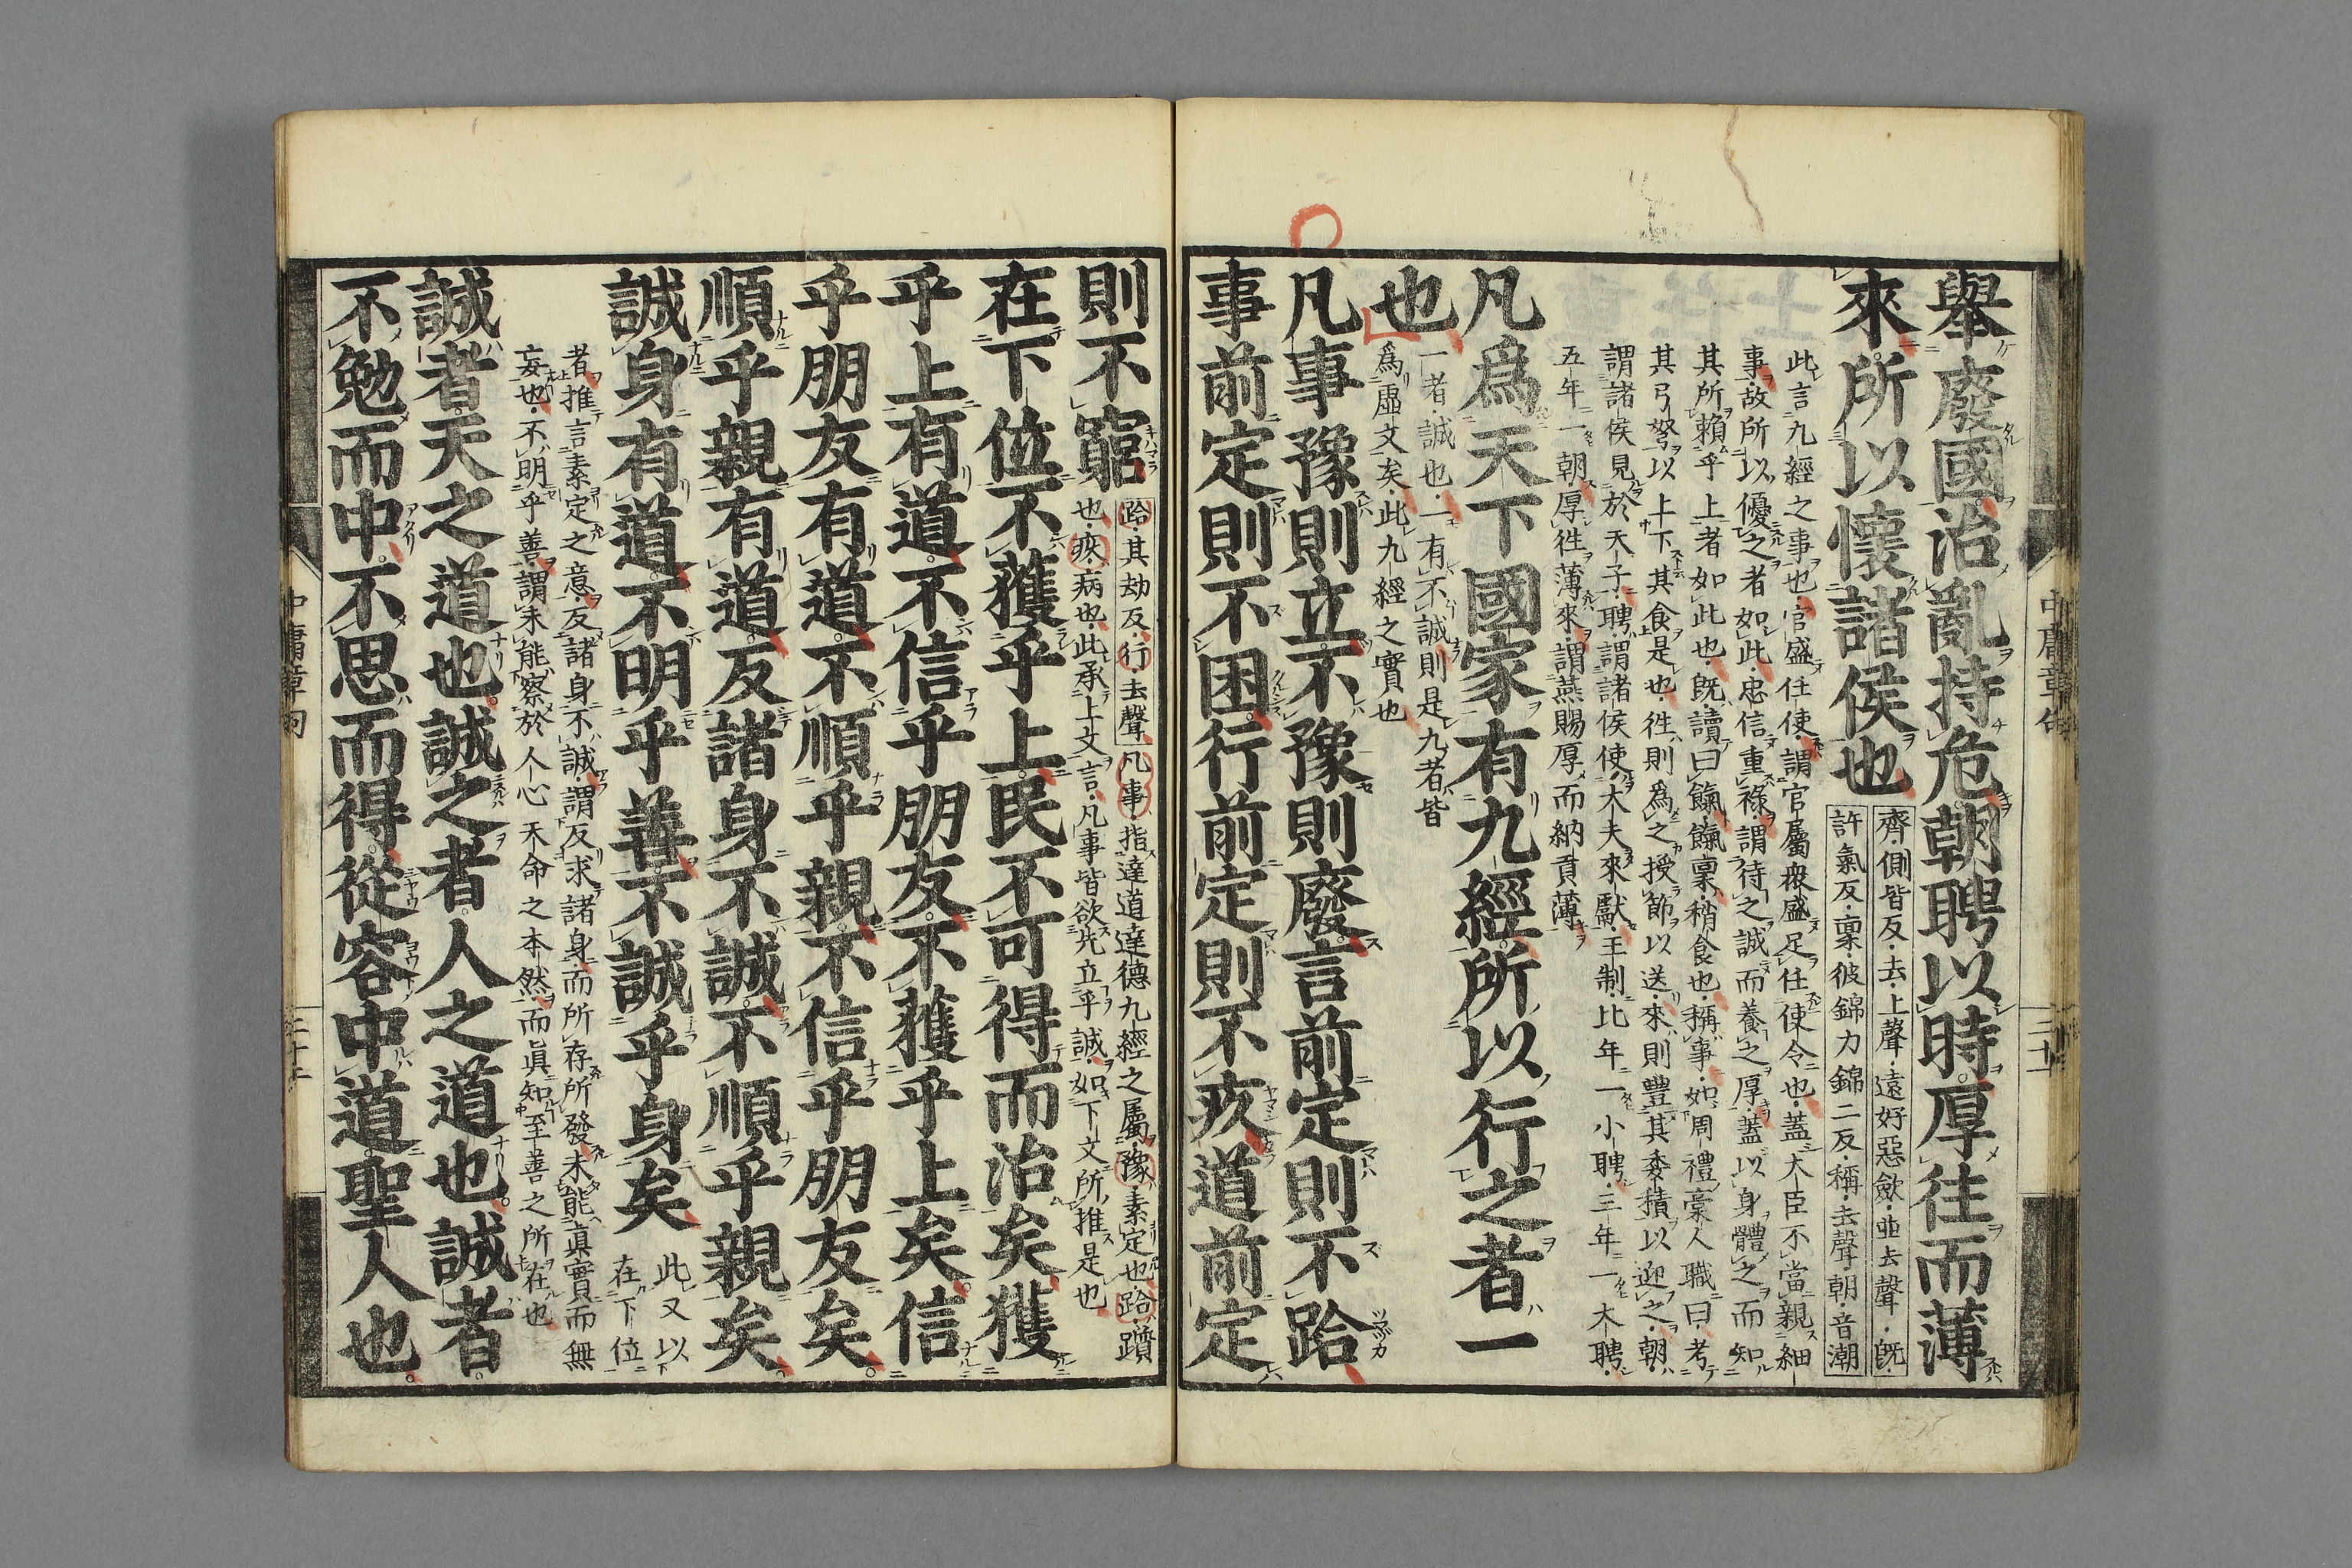 舉廢國治亂持危朝聘以時厚往而薄
來所以懷諸侯也
齊側皆反去上聲遠好惡歛並去聲旣
許氣反稟彼錦力錦二反稱去聲朝音潮
此言九經之事也官盛任使謂官屬衆盛足任使令也蓋大臣不當親細
事故所以優之者如此忠信重祿謂待之誠而養之厚蓋以身體之而知
其所賴乎上者如此也旣讀曰餼餼稟稍食也稱事如周禮稾人職曰考
其弓弩以上下其食是也徃則爲之授節以送來則豐其委積以迎之朝
謂諸侯見於天子聘謂諸侯使大夫來獻王制比年一小聘三年一大聘
五年一朝厚徃薄來謂燕賜厚而納貢薄
凡爲天下國家有九經所以行之者一
也
一者誠也一有不誠則是九者皆
爲虛文矣此九經之實也
凡事豫則立不豫則廢言前定則不跲
事前定則不困行前定則不疚道前定
則不窮
跲其劫反行去聲凡事指達道達德九經之屬豫素定也跲躓
也疚病也此承上文言凡事皆欲先立乎誠如下文所推是也
在下位不獲乎上民不可得而治矣獲
乎上有道不信乎朋友不獲乎上矣信
乎朋友有道不順乎親不信乎朋友矣
順乎親有道反諸身不誠不順乎親矣
誠身有道不明乎善不誠乎身矣
此又以
在下位
者推言素定之意反諸身不誠謂反求諸身而所存所發未能眞實而無
妄也不明乎善謂未能察於人心天命之本然而眞知至善之所在也
誠者天之道也誠之者人之道也誠者
不勉而中不思而得從容中道聖人也